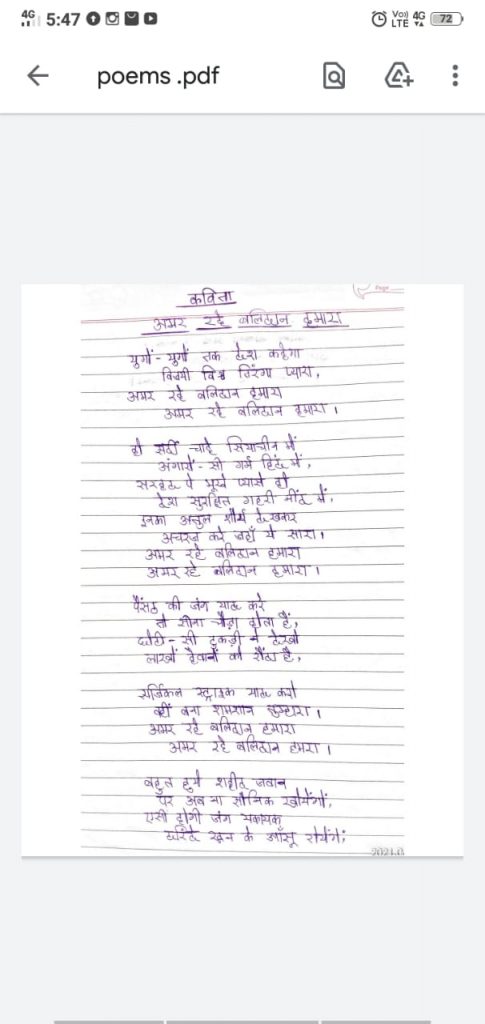 4G 5:47 Vo) LTE 4G 72
poems .pdf
Page
कविता
अमर रहे बलिदान हमारा
युगों - युगों तक देश कहेगा
विजयी विश्व तिरंगा प्यारा,
अमर रहे बलिदान हमारा
अमर रहे बलिदान हमारा ।
हो सर्दी चाहे सियाचीन में
अंगारों - सी गर्म हिंद में,
सरहद पे भूखे प्यासे हो
देश सुरक्षित गहरी नींद में,
इनका अतुल शौर्य देखकर
अचरज करे जहाँ ये सारा ।
अमर रहे बलिदान हमारा
अमर रहे बलिदान हमारा ।
पैंसठ की जंग याद करे
तो सीना चौड़ा होता है,
छोटी - सी टुकड़ी ने देखो
लाखों हैवानों को रौंदा है,
सर्जिकल स्ट्राइक याद करो
वहीं बना शमशान तुम्हारा ।
अमर रहे बलिदान हमारा
अमर रहे बलिदान हमरा ।
बहुत हुये शहीद जवान
पर अब ना सैनिक खोयेंगों,
एसी होगी जंग भयायक
खून के आँसू रोयेंगे;
2021.6